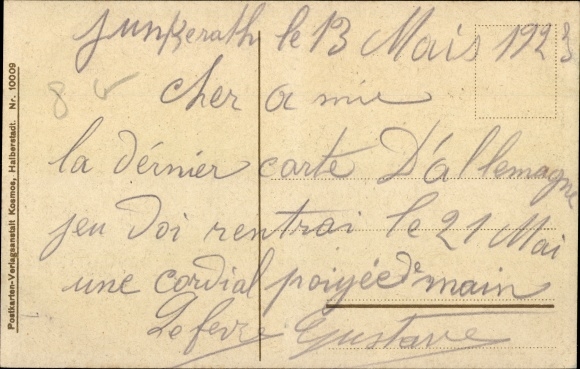 Junkerath le 13 Mais 1923
cher a mie
la dérnier carte D'allemagne
jeu doi rentrai le 21 Mai
une cordial poiyée de main
Lefevre Gustave
Postkarten-Verlagsanstalt Kosmos, Halberstadt. Nr. 10009